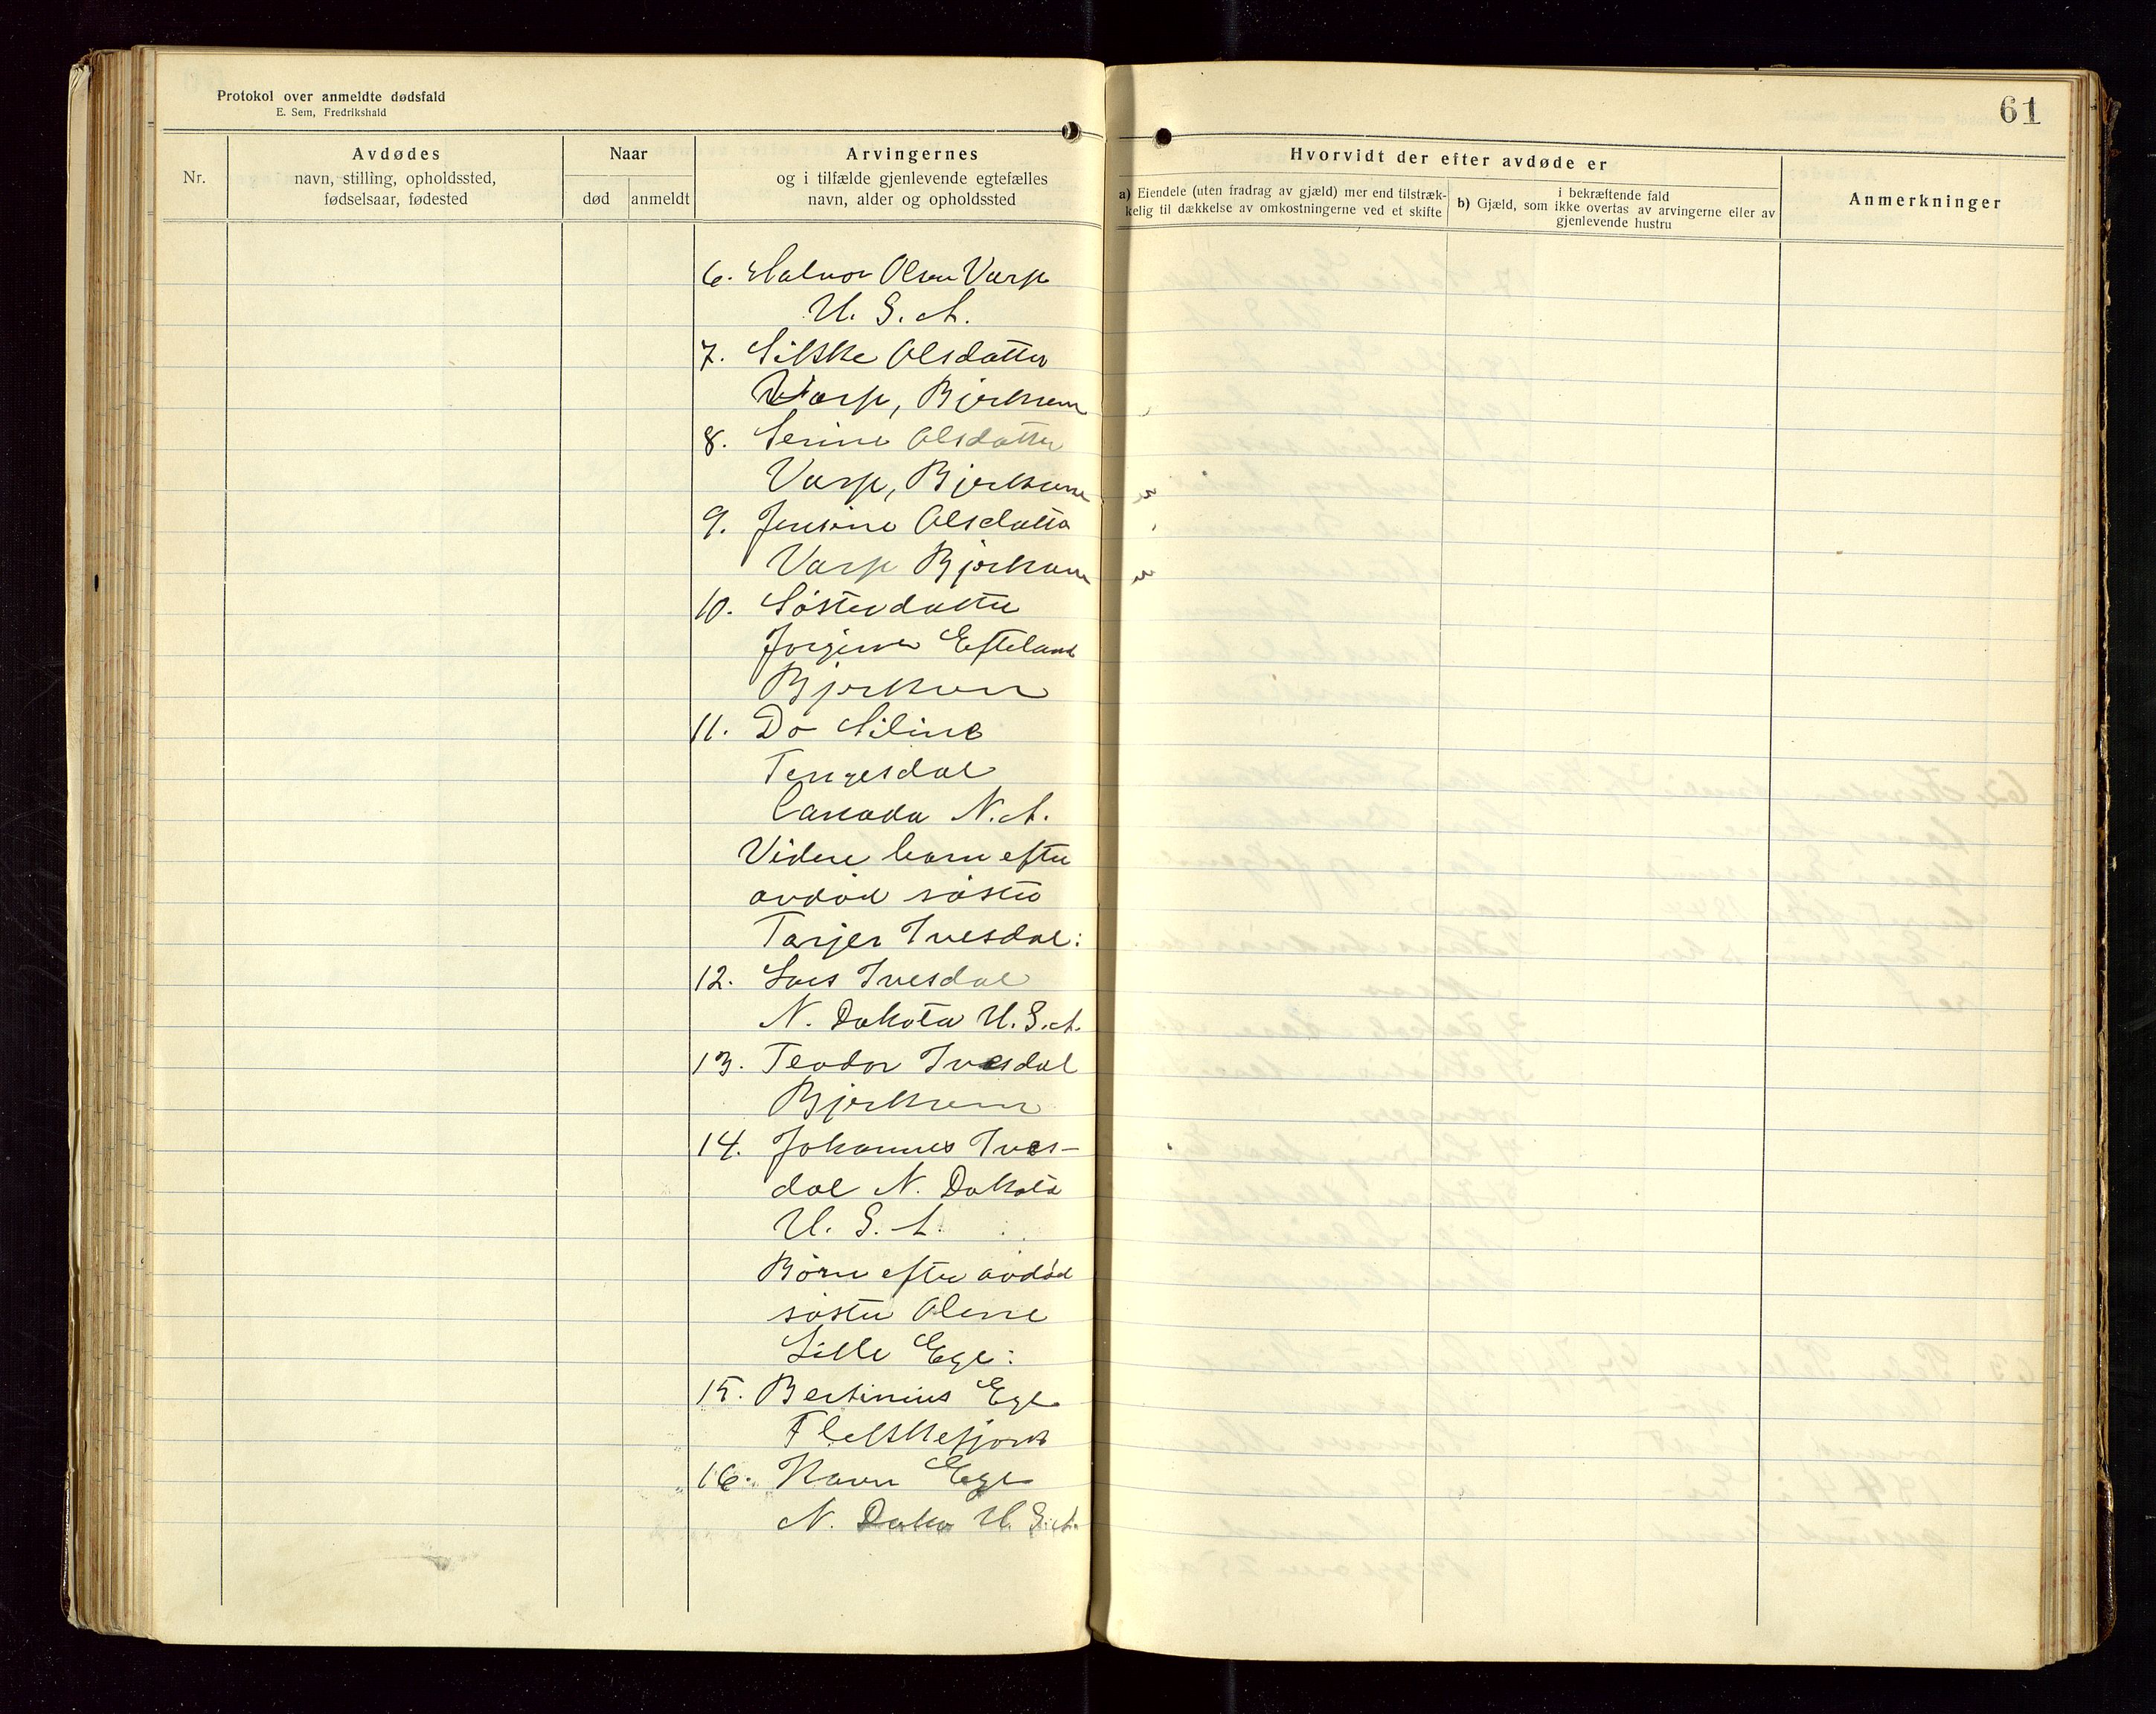 Protokol over anmeldte dødsfald
E. Sem, Fredrikshald
61
Nr.
Avdødes
navn, stilling, opholdssted,
fødselsaar, fødested
Naar
død
anmeldt
Arvingernes
og i tilfælde gjenlevende egtefælles
navn, alder og opholdssted
Hvorvidt der efter avdøde er
a) Eiendele (uten fradrag av gjæld) mer end tilstræk-
kelig til dækkelse av omkostningerne ved et skifte
i bekræftende fald
b) Gjæld, som ikke overtas av arvingerne eller av
gjenlevende hustru
Anmerkninger
6. Halvor Olsen Varp
U. S. A.
7. Silkke Olsdatter
Varp, Bjerkreim
8. Serine Olsdatter
Varp, Bjerkreim
9. Jensine Olsdatter
Varp Bjerkreim
10. Søsterdatter
Jorgine Efteland
Bjerkreim
11. Do Siline
Tengesdal
Canada N. A.
Videre barn efter
avdød søster
Tarjer Ivesdal:
12. Lars Ivesdal
N. Dakota U. S. A.
13. Teodor Ivesdal
Bjerkreim
14. Johannes Ives-
dal N. Dakota
U. S. A.
Børn efter avdød
søster Olene
Lille Ege:
15. Bertinius Ege
Flekkefjord
16. Ege
N. Dako U. S. A.